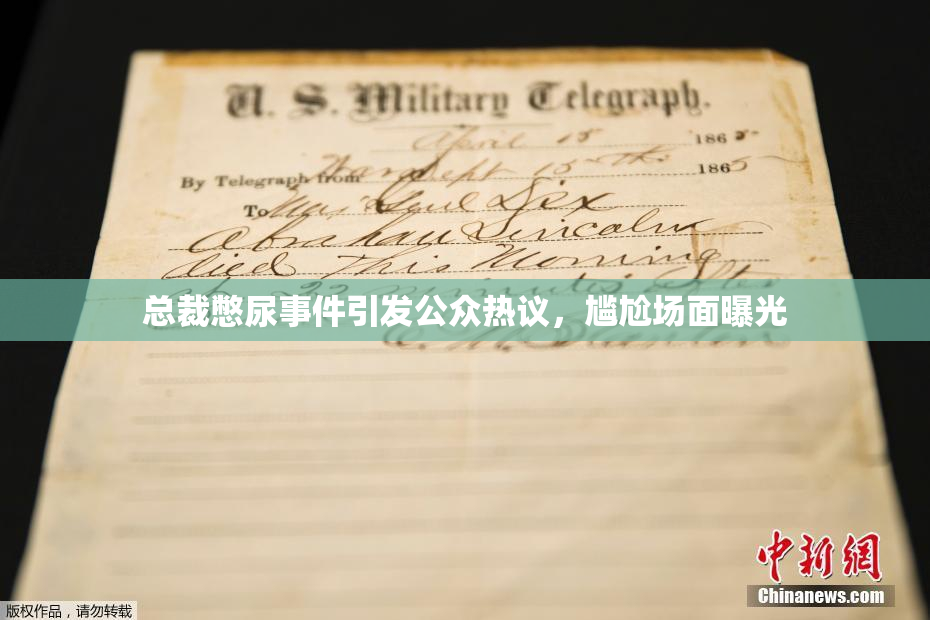 U. S. Military Telegraph.
April 15 1865-
By Telegraph from War Dept 15th 1865
To Maj Genl Dix
Abraham Lincoln
died This Morning
22 minutes after
总裁憋尿事件引发公众热议，尴尬场面曝光
E. M. Stanton
中新网
Chinanews.com
版权作品，请勿转载